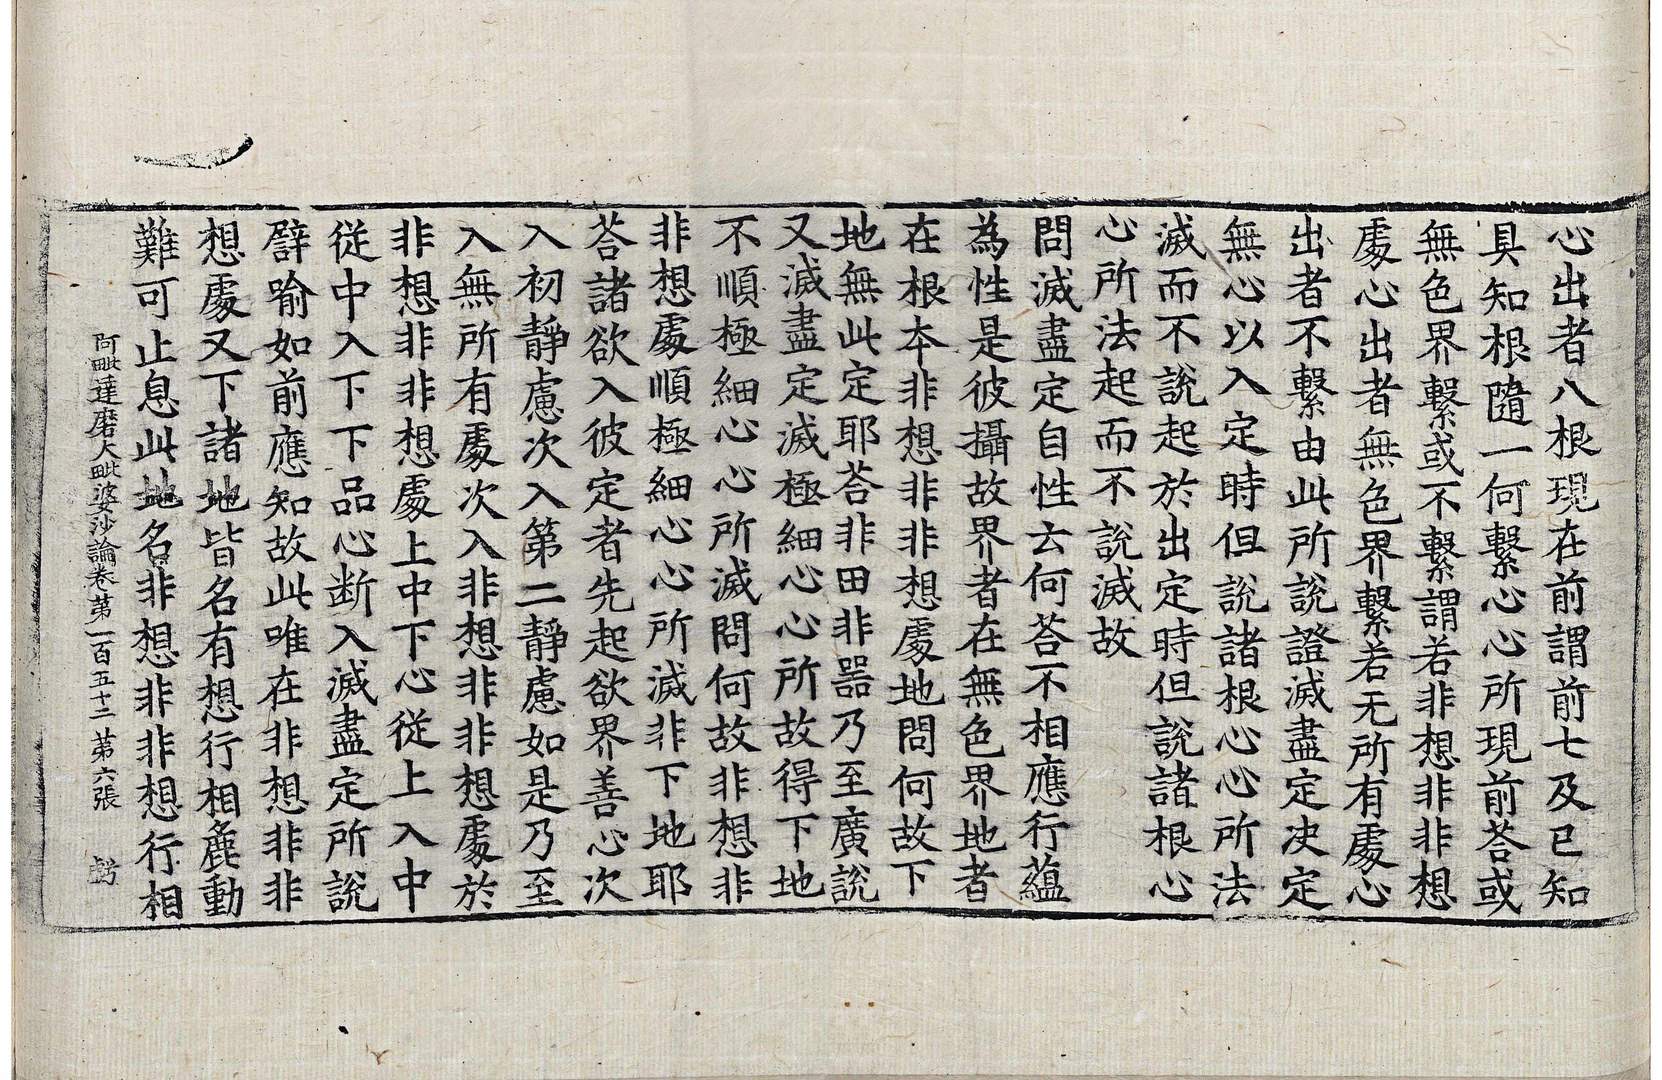 心出者八根現在前謂前七及已知
具知根隨一何繫心心所現前荅或
無色界繫或不繫謂若非想非非想
處心出者無色界繫若无所有處心
出者不繫由此所說證滅盡定决定
無心以入定時但說諸根心心所法
滅而不說起於出定時但說諸根心
心所法起而不說滅故
問滅盡定自性云何荅不相應行蘊
為性是彼攝故界者在無色界地者
在根本非想非非想處地問何故下
地無此定耶荅非田非器乃至廣說
又滅盡定滅極細心心所故得下地
不順極細心心所滅問何故非想非
非想處順極細心心所滅非下地耶
荅諸欲入彼定者先起欲界善心次
入初靜慮次入第二靜慮如是乃至
入無所有處次入非想非非想處於
非想非非想處上中下心從上入中
從中入下下品心断入滅盡定所說
譬喻如前應知故此唯在非想非非
想處又下諸地皆名有想行相麁動
難可止息此地名非想非非想行相
阿毗達磨大毗婆沙論卷第一百五十二 第六張 虧